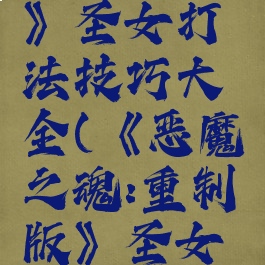 》圣女打
法技巧大
全(《恶魔
之魂:重制
版》圣女